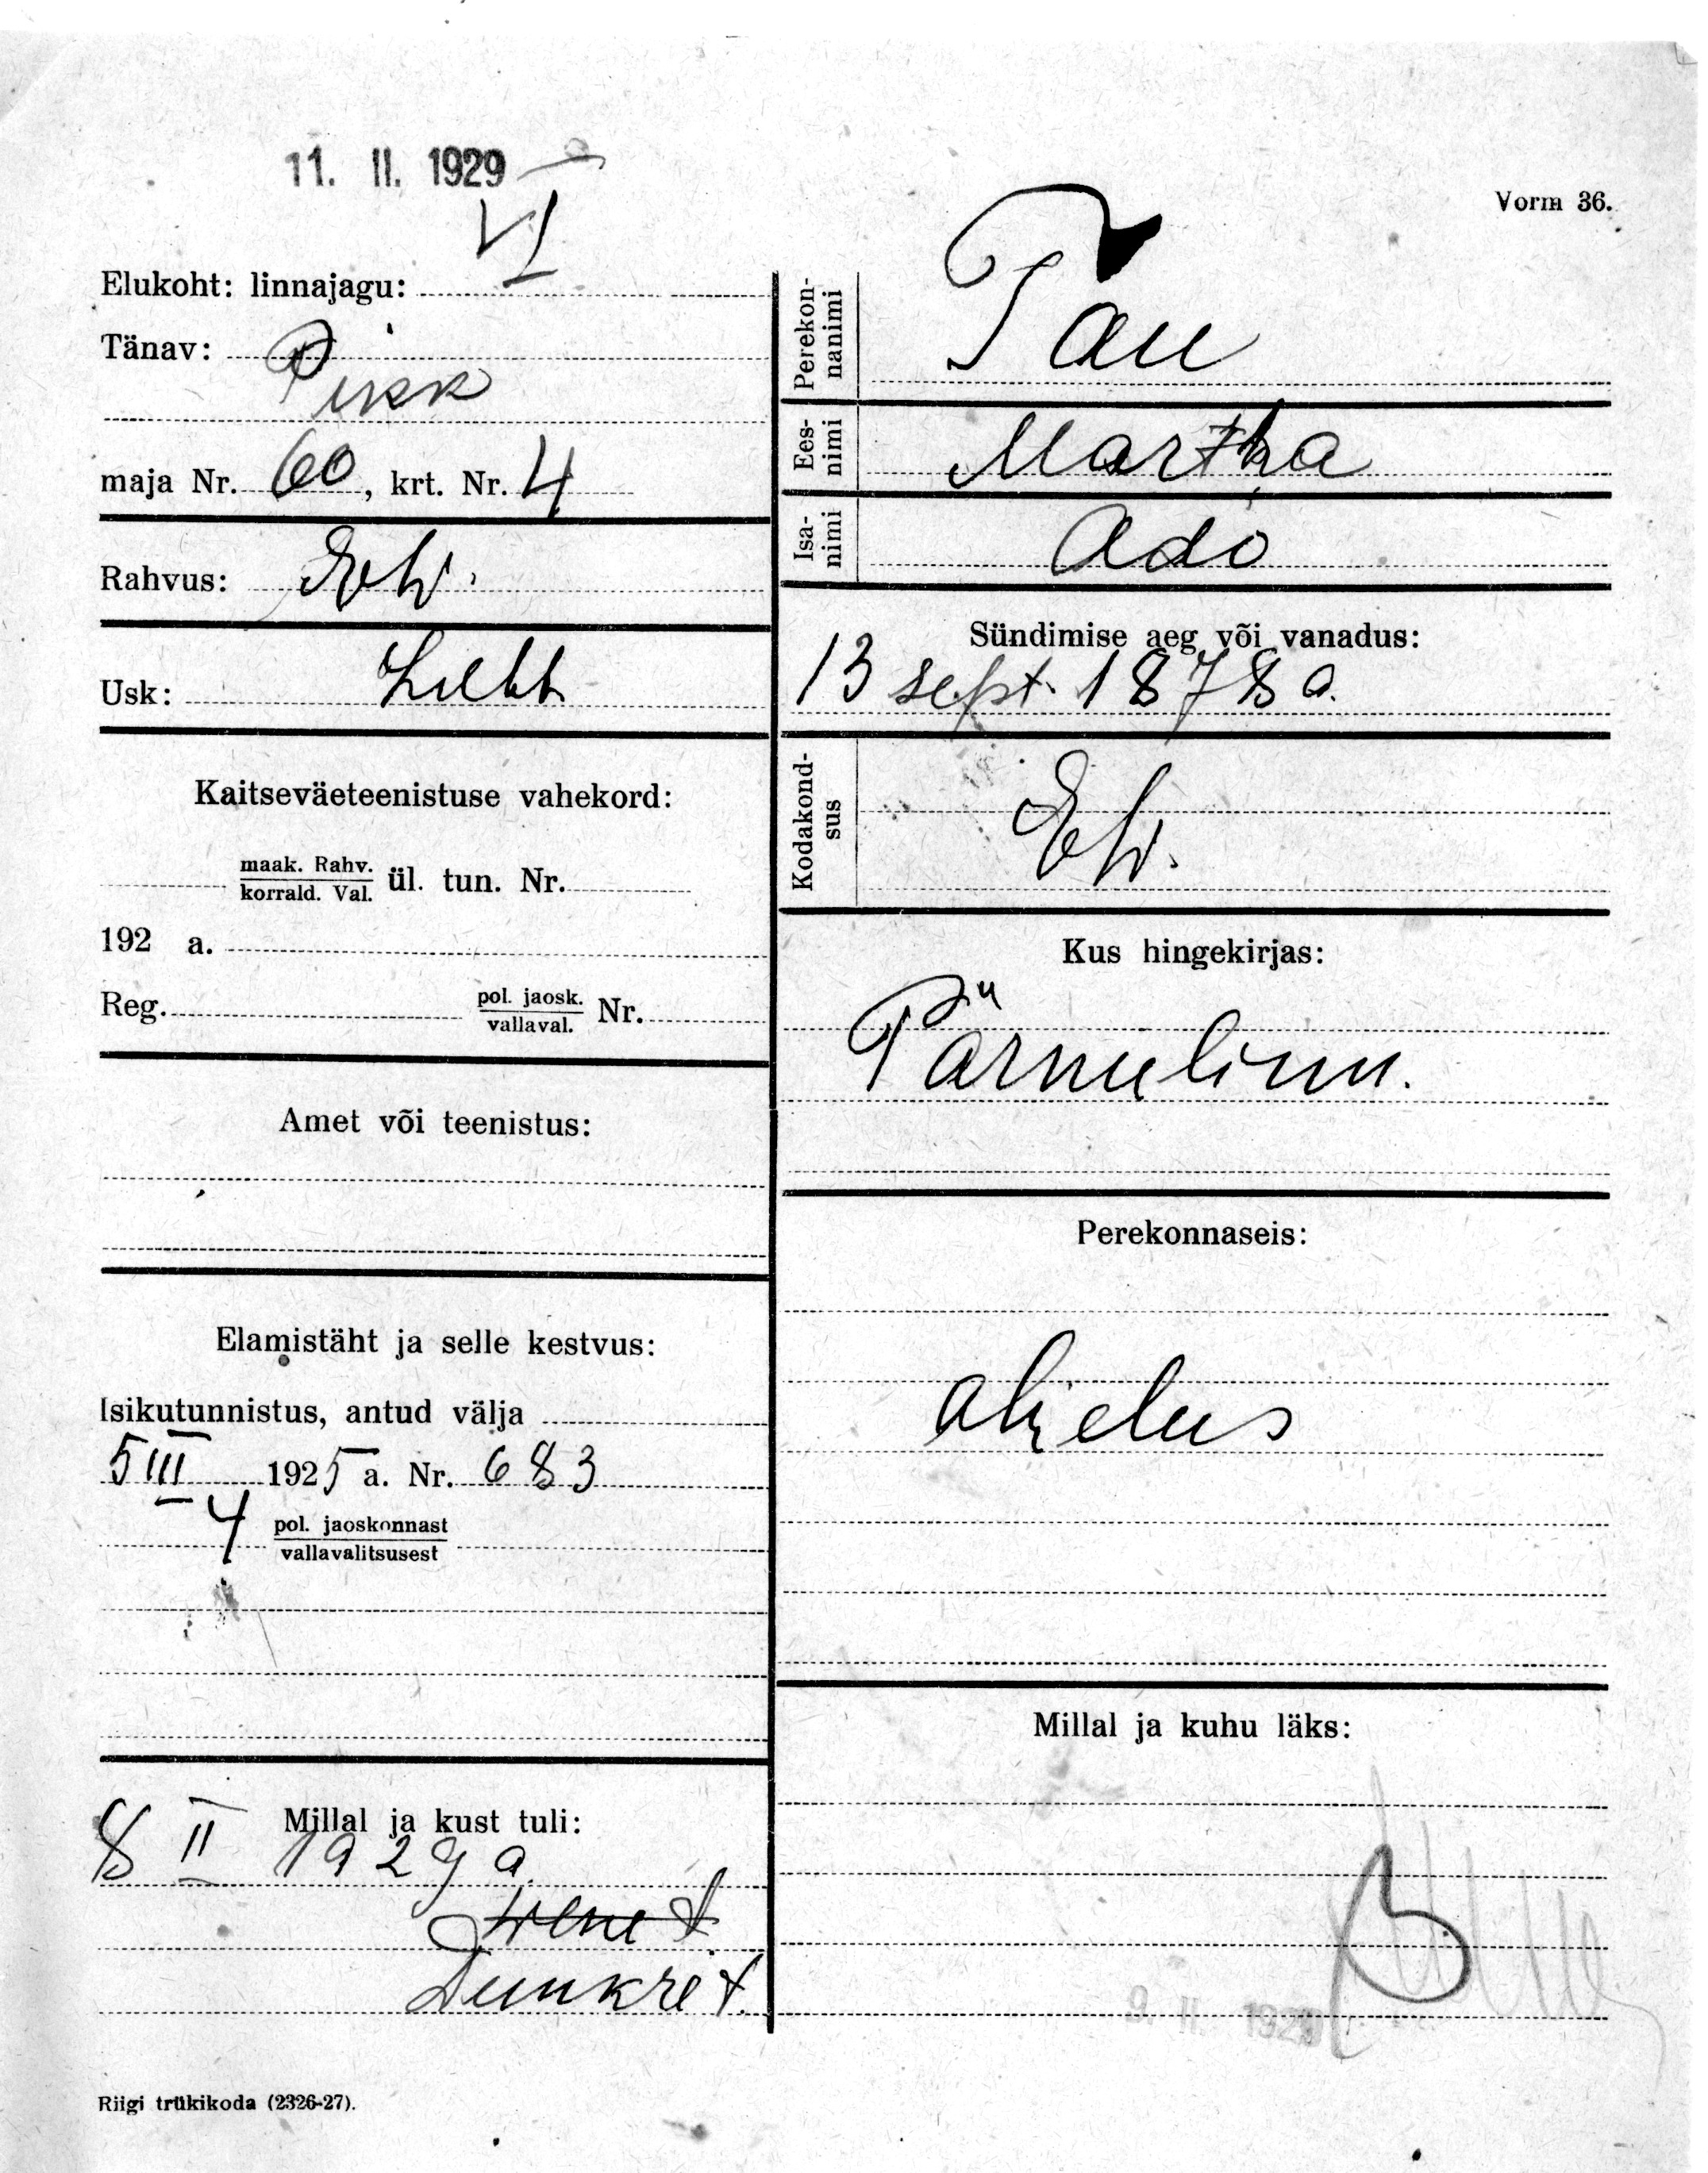 11. II. 1929
Vorm 36.
Elukoht: linnajagu: VI
Tänav: Pikk
maja Nr. 60, krt. Nr. 4
Rahvus:
Usk:
Kaitseväeteenistuse vahekord:
maak. Rahv.
korrald. Val. ül. tun. Nr.
192 a.
Reg. pol. jaosk.
vallaval. Nr.
Amet või teenistus:
Elamistäht ja selle kestvus:
Isikutunnistus, antud välja
5 III 1925 a. Nr. 683
4 pol. jaoskonnast
vallavalitsusest
Millal ja kust tuli:
8 II 1929 a.
Riigi trükikoda (2326-27).
Perekon-
nanimi Tau
Ees-
nimi Martha
Isa-
nimi Ado
Sündimise aeg või vanadus:
13 sept. 1878 a.
Kodakond-
sus
Kus hingekirjas:
Pärnu linn.
Perekonnaseis:
Millal ja kuhu läks:
9. II 1929